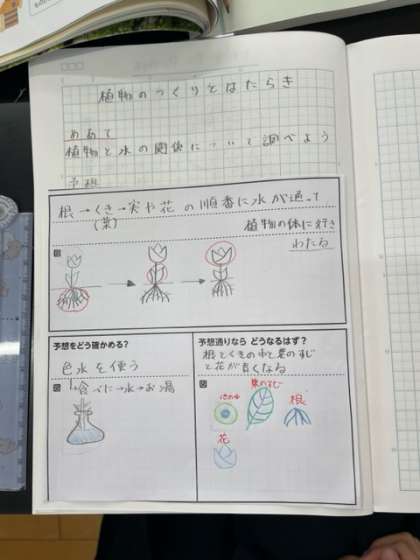 植物のつくりとはたらき
めあて
植物と水の関係について調べよう
予想
根→くき→実や花の順番に水が通って
(葉)
植物の体に行き
わたる
図
予想をどう確かめる?
色水を使う
図
予想通りなら どうなるはず?
根とくきのわと葉のすじ
と花が青くなる
図
葉のすじ
根
花